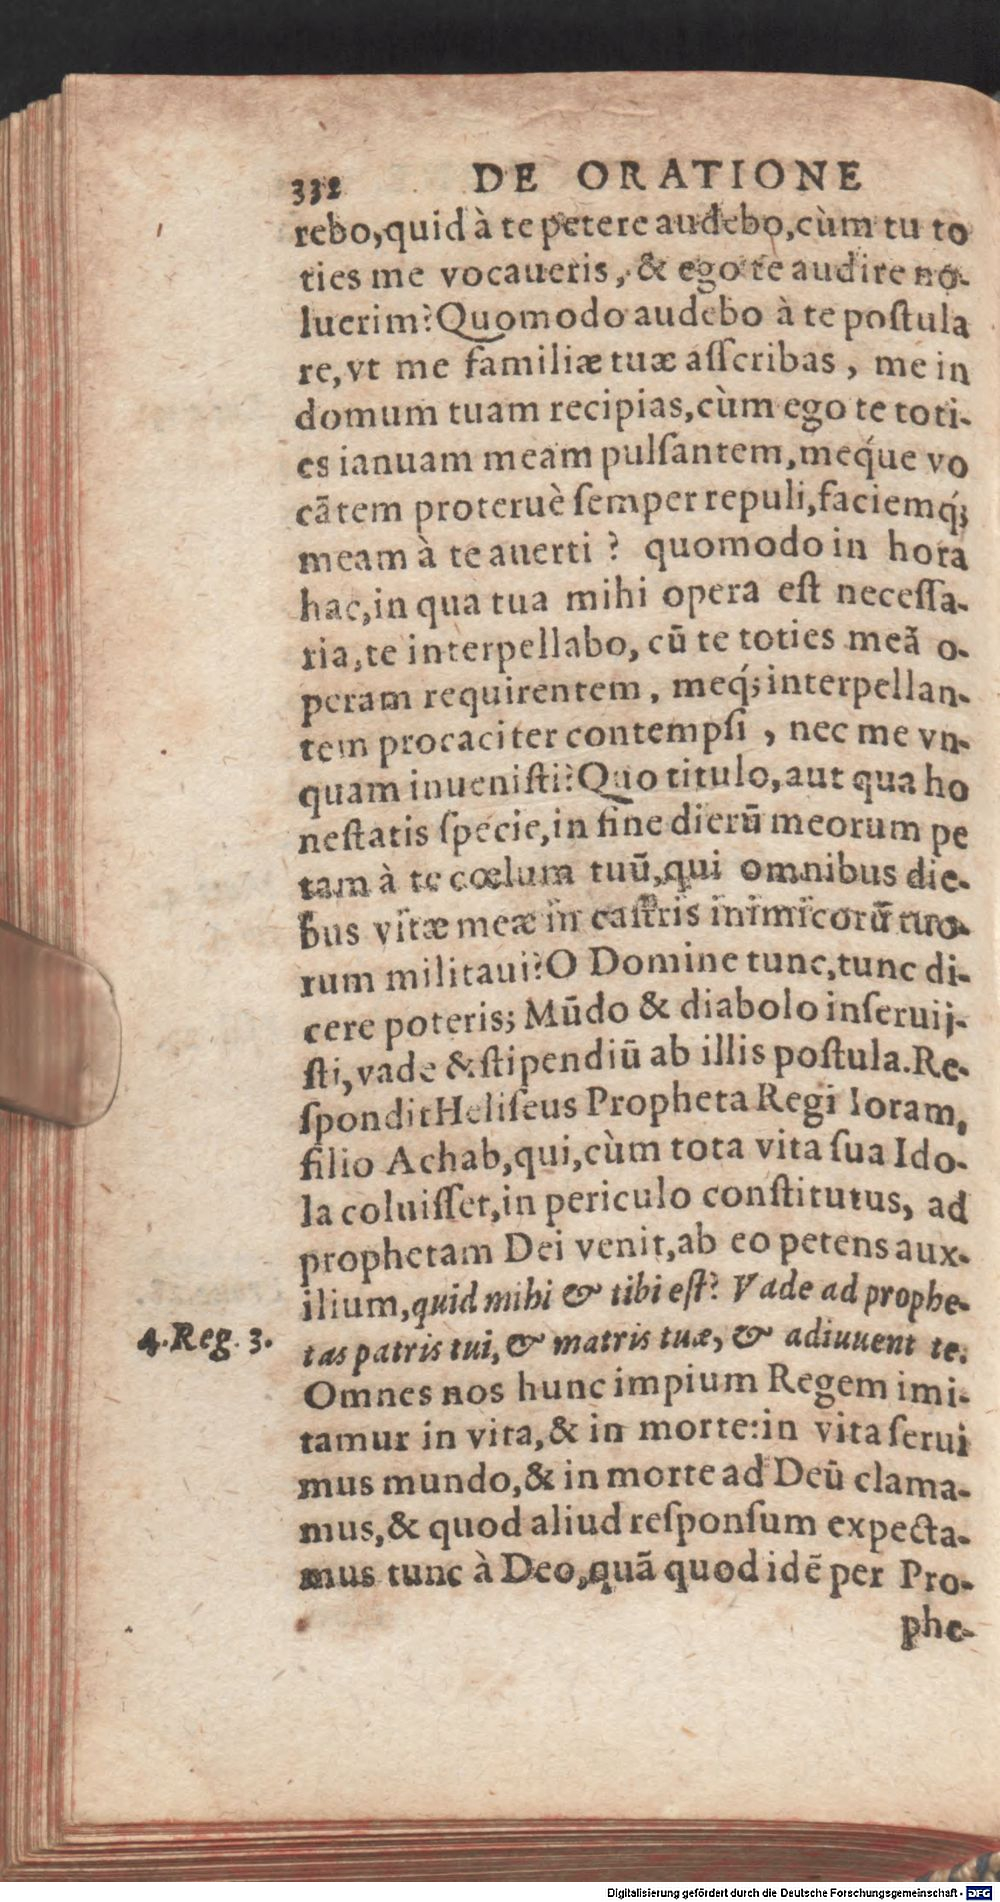 332 DE ORATIONE
rebo,quid à te petere audebo,cùm tu to
ties me vocaueris, & ego te audire no-
luerim? Quomodo audebo à te poſtula
re,vt me familiæ tuæ aſſcribas, me in
domum tuam recipias,cùm ego te toti-
es ianuam meam pulſantem,meq́ue vo
cātem proteruè ſemper repuli,faciemq́;
meam à te auerti? quomodo in hora
hac,in qua tua mihi opera eſt neceſſa-
ria,te interpellabo, cū te toties meā o-
peram requirentem, meq́; interpellan-
tem procaciter contempſi, nec me vn-
quam inueniſti? Quo titulo,aut qua ho
neſtatis ſpecie,in fine dierū meorum pe
tam à te cœlum tuū,qui omnibus die-
bus vitæ meæ in caſtris inimicorū tuo-
rum militaui? O Domine tunc,tunc di-
cere poteris; Mūdo & diabolo inſeruij-
ſti,vade & ſtipendiū ab illis poſtula.Re-
ſpondit Heliſeus Propheta Regi Ioram,
filio Achab,qui,cùm tota vita ſua Ido-
la coluiſſet,in periculo conſtitutus, ad
prophetam Dei venit,ab eo petens aux-
ilium,quid mihi & tibi eſt? Vade ad prophe-
4. Reg. 3. tas patris tui, & matris tuæ, & adiuuent te.
Omnes nos hunc impium Regem imi-
tamur in vita,& in morte:in vita ſerui
mus mundo,& in morte ad Deū clama-
mus,& quod aliud reſponſum expecta-
mus tunc à Deo,quā quod idē per Pro-
phe-
Digitalisierung gefördert durch die Deutsche Forschungsgemeinschaft - DFG